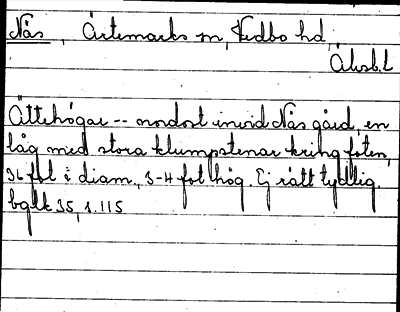 Nås, Ärtemarks sn, Vedbo hd,
Älvsb.l
Ättehögar -- nordost invid Nås gård, en
låg med stora klumpstenar kring foten,
36 fot i diam., 3-4 fot hög. Ej rätt tydlig.
bglk 35, s. 115